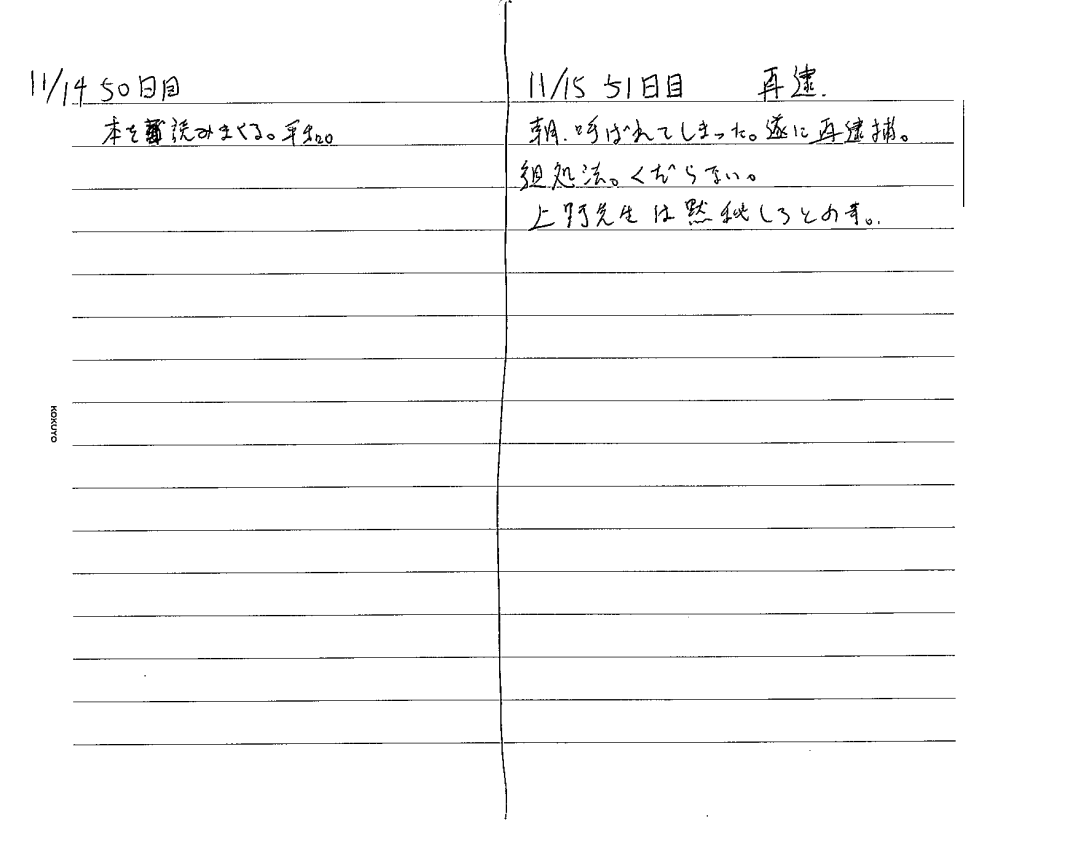 11/14 50日目
本を読みまくる。平和。
KOKUYO
11/15 51日目 再逮.
朝.呼ばれてしまった。遂に再逮捕。
組処法。くだらない。
上野先生は黙秘しろとの事。